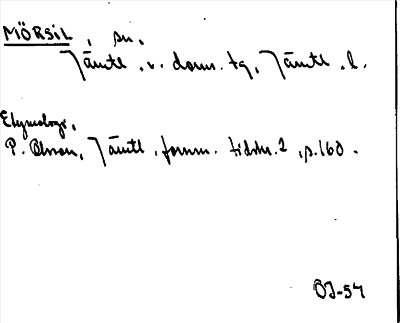 MÖRSIL, sn.
Jämtl. v. doms. tg, Jämtl. l.
Etymologi.
P. Olsson, Jämtl. fornm. tidskr. 2, p. 160.
ÖJ-54